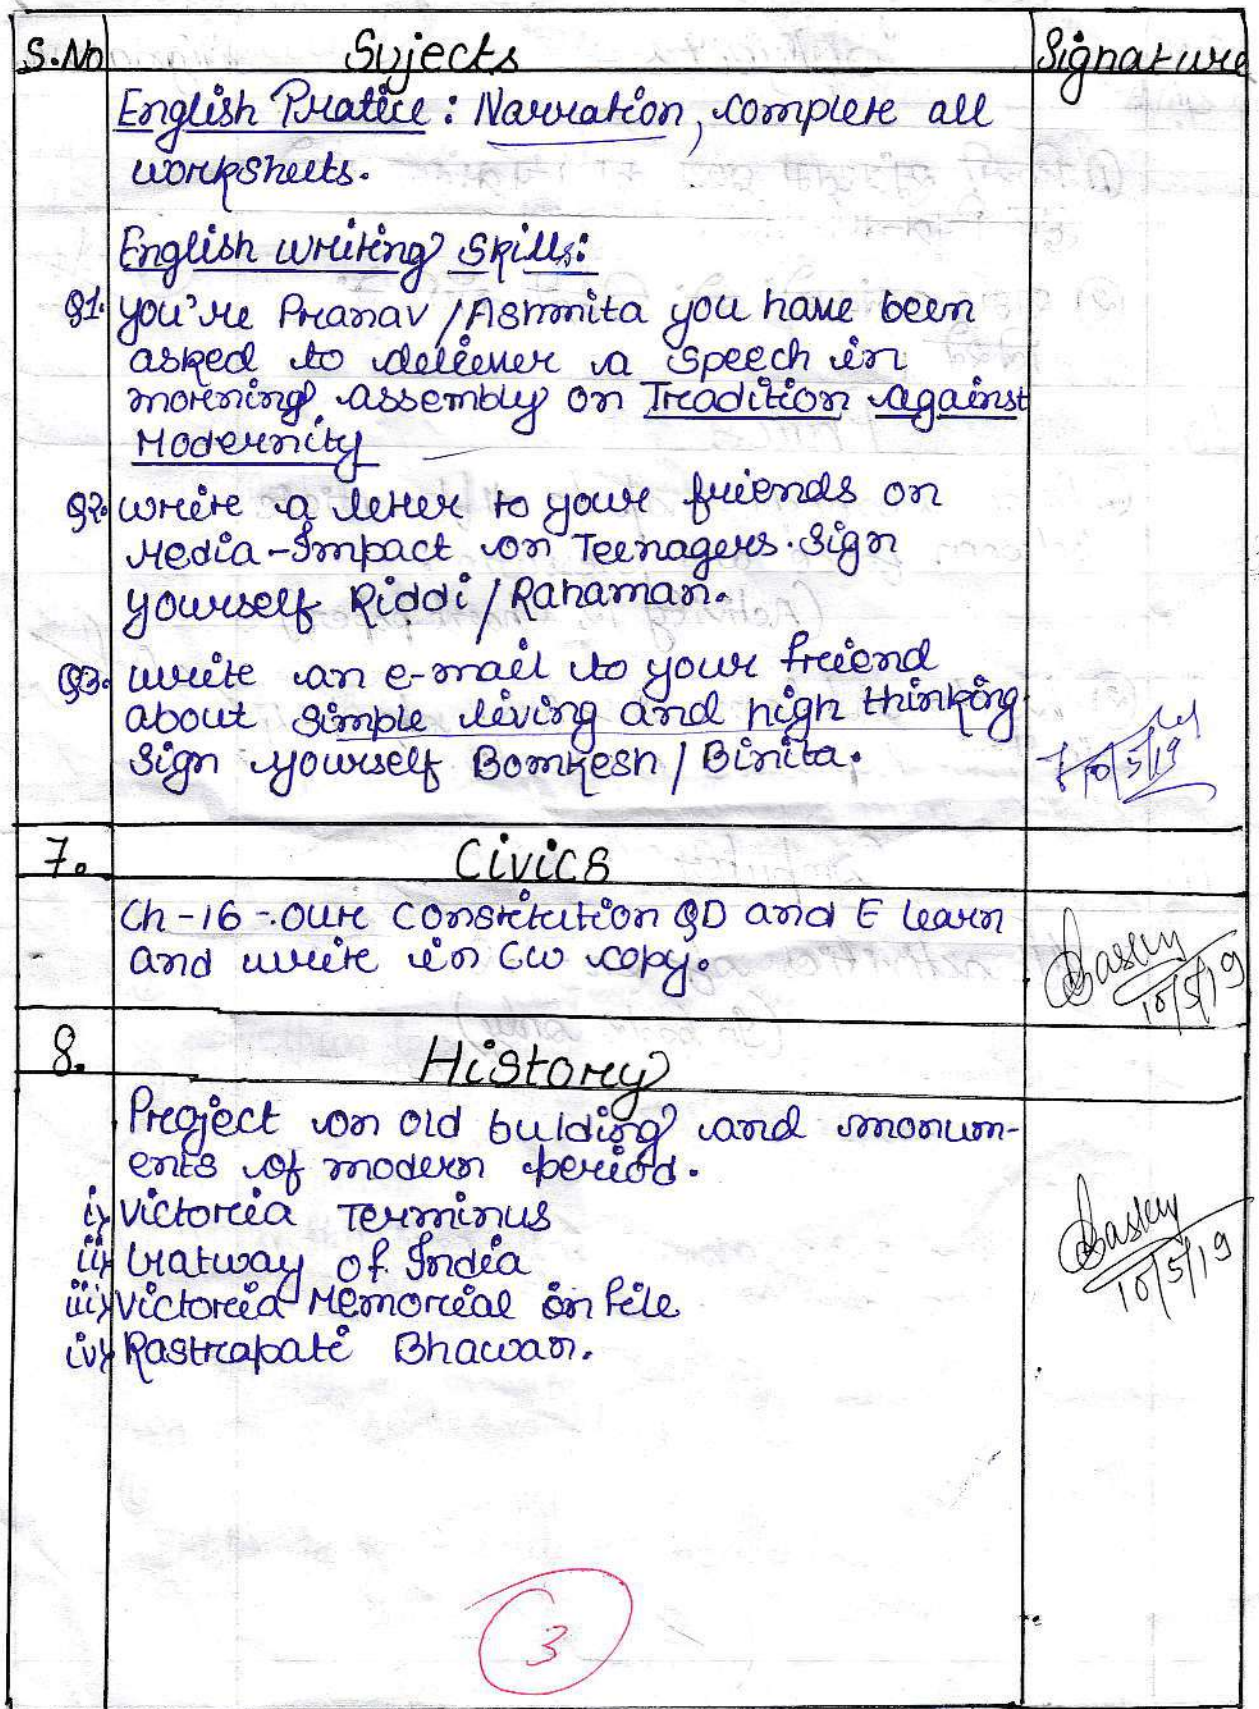 S.No Sujects Signature
English Pratice : Narration, complete all
worksheets.
English writing Skills:
Q1. you're Pranav / Asmmita you have been
asked to deliever a speech in
morning assembly on Tradition against
Modernity
Q2. write a letter to your friends on
Media-Impact on Teenagers. Sign
yourself Riddi / Rahaman.
Q3. write an e-mail to your friend
about simple living and high thinking.
Sign yourself Bomkesh / Binita.
10/5/19
7. Civics
Ch-16-Our Constitution QD and E learn
and write in CW copy.
10/5/19
8. History
Project on old bulding and monum-
ents of modern period.
i) Victoria Terminus
ii) Gatway of India
iii) Victoria Memorial in file
iv) Rastrapati Bhawan.
10/5/19
3